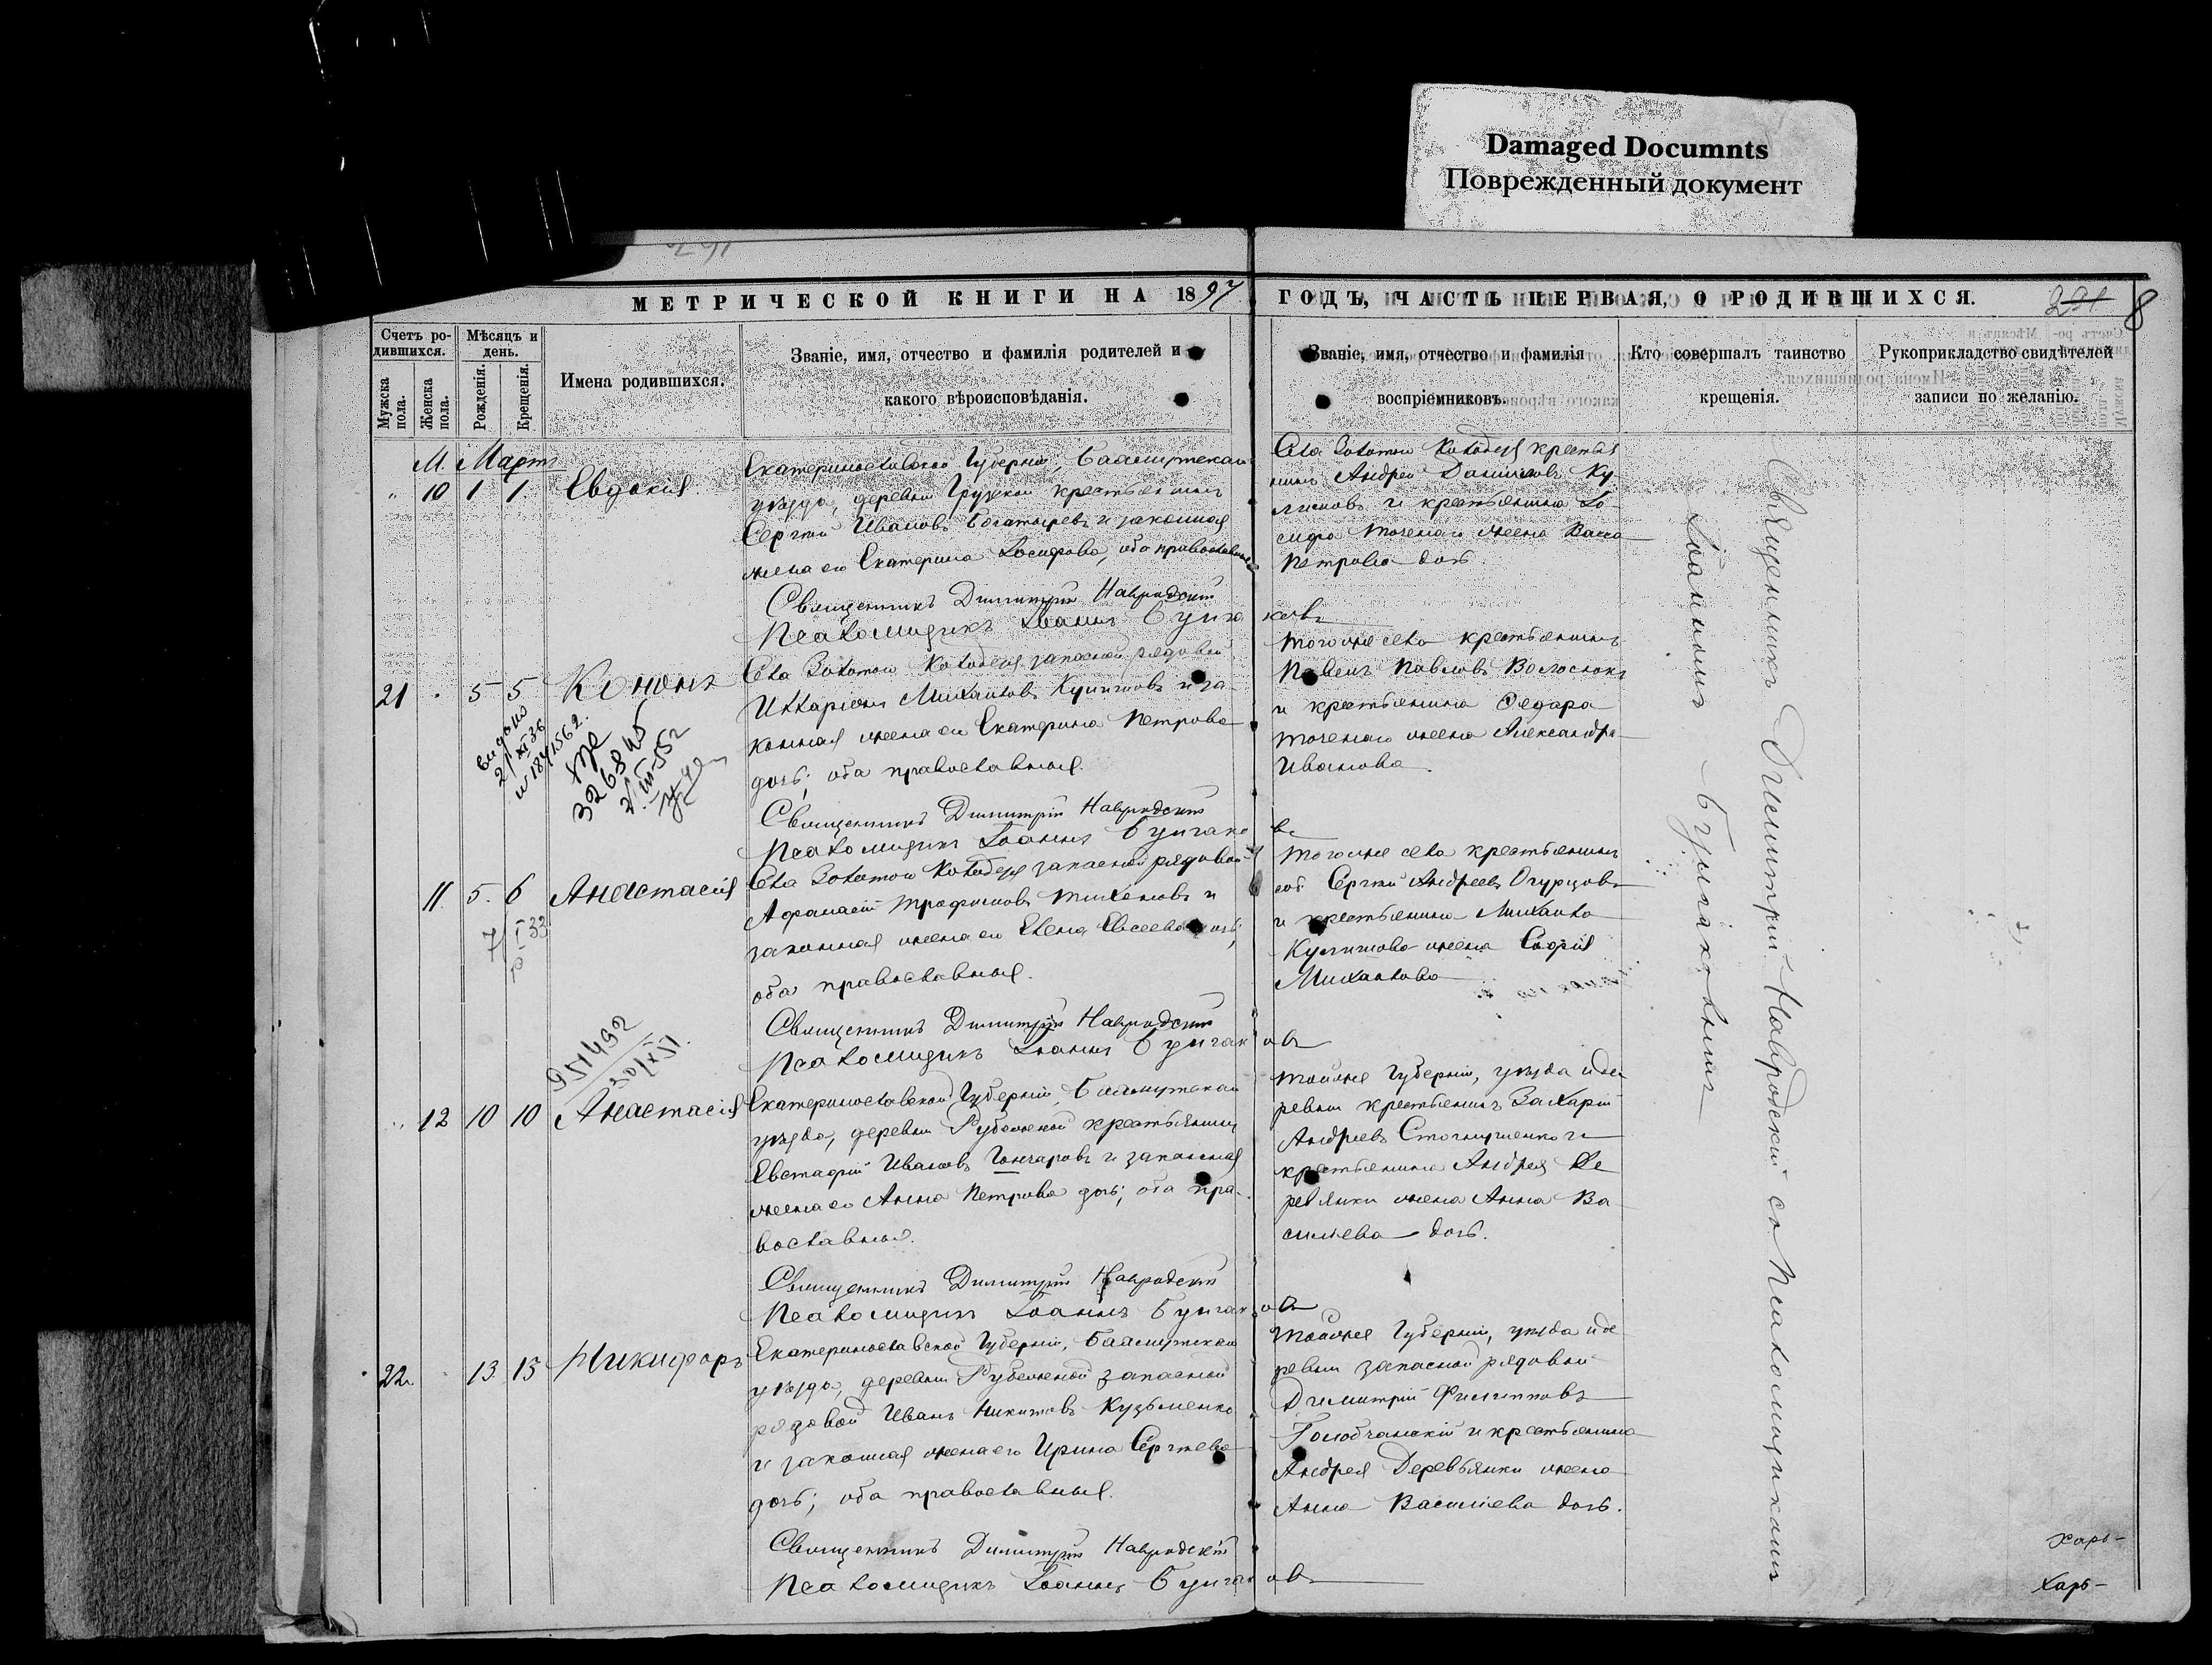 Damaged Documnts
Поврежденный документ
МЕТРИЧЕСКОЙ КНИГИ НА 1897 ГОДЪ, ЧАСТЬ ПЕРВАЯ, О РОДИВШИХСЯ.
291 8
Счетъ родившихся.
Мужска пола.
Женска пола.
Мѣсяцъ и день.
Рожденія.
Крещенія.
Имена родившихся.
Званіе, имя, отчество и фамилія родителей и
какого вѣроисповѣданія.
Званіе, имя, отчество и фамилія
воспріемниковъ.
Кто совершалъ таинство
крещенія.
Рукоприкладство свидѣтелей
записи по желанію.
М. Мартъ
10 1 1. Евдокія.
Екатеринославской Губерніи, Бахмутскаго
уѣзда, деревни Грузской крестьянинъ
Сергѣй Ивановъ Богатыревъ и законная
жена его Екатерина Іосифова, оба православные
Села Золотого Колодезя крестья
нинъ Андрей Даниловъ Ку
лишовъ и крестьянина Іо
сифа жена Васса
Петрова дочь.
Священникъ Димитрій Навродскій
Псаломщикъ Іоаннъ Булгаковъ
21 5 5 Кононъ
Села Золотого Колодезя запасной рядовой
Илларіонъ Михаиловъ Кулишовъ и за
конная жена его Екатерина Петрова
дочь; оба православные.
того же села крестьянинъ
Павелъ Павловъ
и крестьянина Федора
жена Александра
Иванова.
выдано
21/XI 36
326845
2/III-552
Священникъ Димитрій Навродскій
Псаломщикъ Іоаннъ Булгаковъ
11. 5. 6 Анастасія
Села Золотого Колодезя запасной рядовой
Афанасій Трофимовъ Тихоновъ и
законная жена его Елена Евсеева дочь;
оба православные.
того же села крестьянинъ
Сергѣй Андреевъ Огурцовъ
и крестьянина Михаила
Кулишова жена Софія
Михаилова
7/I 33
Священникъ Димитрій Навродскій
Псаломщикъ Іоаннъ Булгаковъ
951492
30/XI 51.
12 10 10 Анастасія
Екатеринославской Губерніи, Бахмутскаго
уѣзда, деревни Рубежной крестьянинъ
Евстафій Ивановъ Гончаровъ и законная
жена его Анна Петрова дочь; оба пра-
вославные.
той же Губерніи, уѣзда и де
ревни крестьянинъ Захарій
Андреевъ и
крестьянина Андрея Де
ревянки жена Анна Ва
сильева дочь.
Священникъ Димитрій Навродскій
Псаломщикъ Іоаннъ Булгаковъ
22. 13 13 Никифоръ
Екатеринославской Губерніи, Бахмутскаго
уѣзда, деревни Рубежной запасной
рядовой Иванъ Никитовъ Кузьменко
и законная жена его Ирина Сергѣева
дочь; оба православные.
той же Губерніи, уѣзда и де
ревни запасной рядовой
Димитрій Филипповъ
Голобчанскій и крестьянина
Андрея Деревьянки жена
Анна Васильева дочь.
Священникъ Димитрій Навродскій
Псаломщикъ Іоаннъ Булгаковъ
Священникъ Димитрій Навродскій съ Псаломщикомъ
Іоанномъ Булгаковымъ
Харь-
Харь-